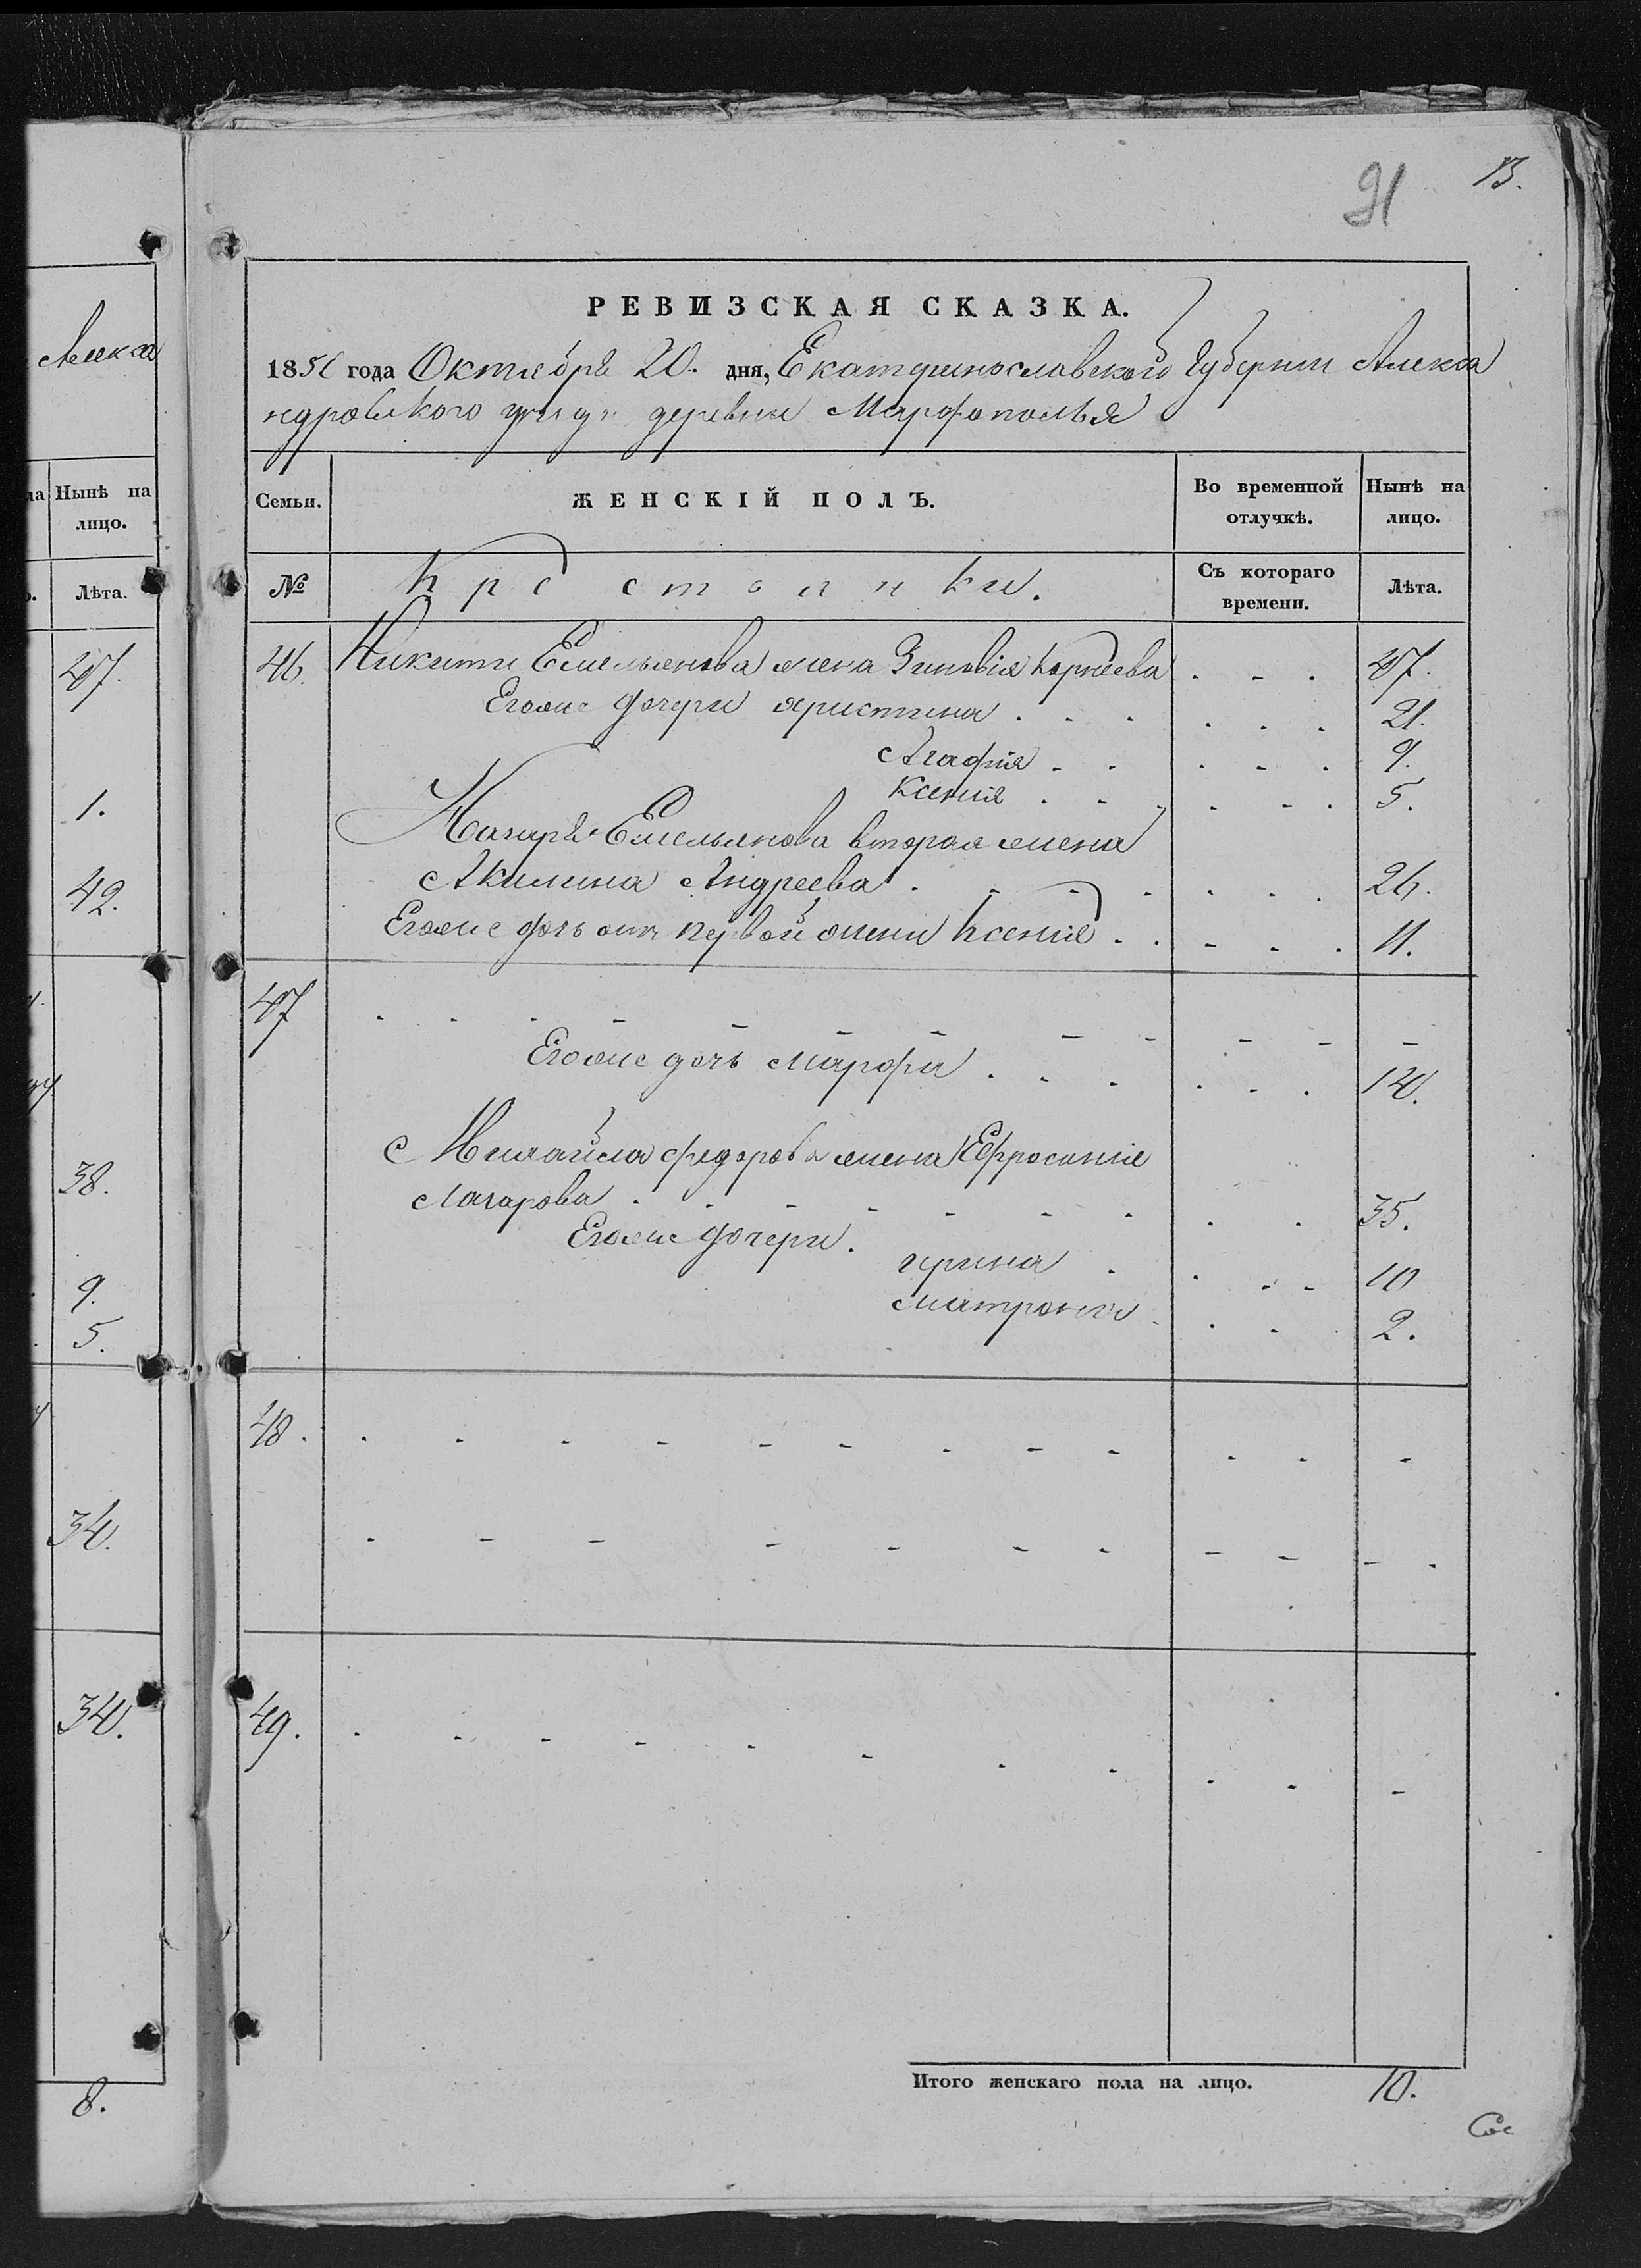 91 13.
РЕВИЗСКАЯ СКАЗКА.
1850 года Октября 20. дня, Екатеринославской Губернии Алекса
ндровского уезда деревни Марфополья
Семьи. ЖЕНСКІЙ ПОЛЪ. Во временной отлучкѣ. Нынѣ на лицо.
№ Крестьянки. Съ котораго времени. Лѣта.
46. Никиты Емельянова жена Зиновія Корнеева . - . 47.
Егоже дочери христина . . . . . . 21.
Агафия . . . - . 9.
Ксения . - . . - . 5.
Назара Емельянова вторая жена
Акилина Андреева . . . . . . . 26.
Егоже дочь отъ первой жены Ксения . . - . . 11.
47 . . . - - - - - - - - -
Егоже дочь Марфа . . . . - . 14.
Михайла Федорова жена Ефросиния
Лазарова . . - - - - . . . 35.
Егоже дочери.
ирина . . - - 10
Матрона . . - . 2.
48. . . . - - - . - - - - -
. - - - - - - - - - .
49. . . - - - - . . . - -
Итого женскаго пола на лицо. 10.
Алекса
Нынѣ на лицо.
Лѣта.
47.
1.
42.
38.
9.
5.
34.
34.
8.